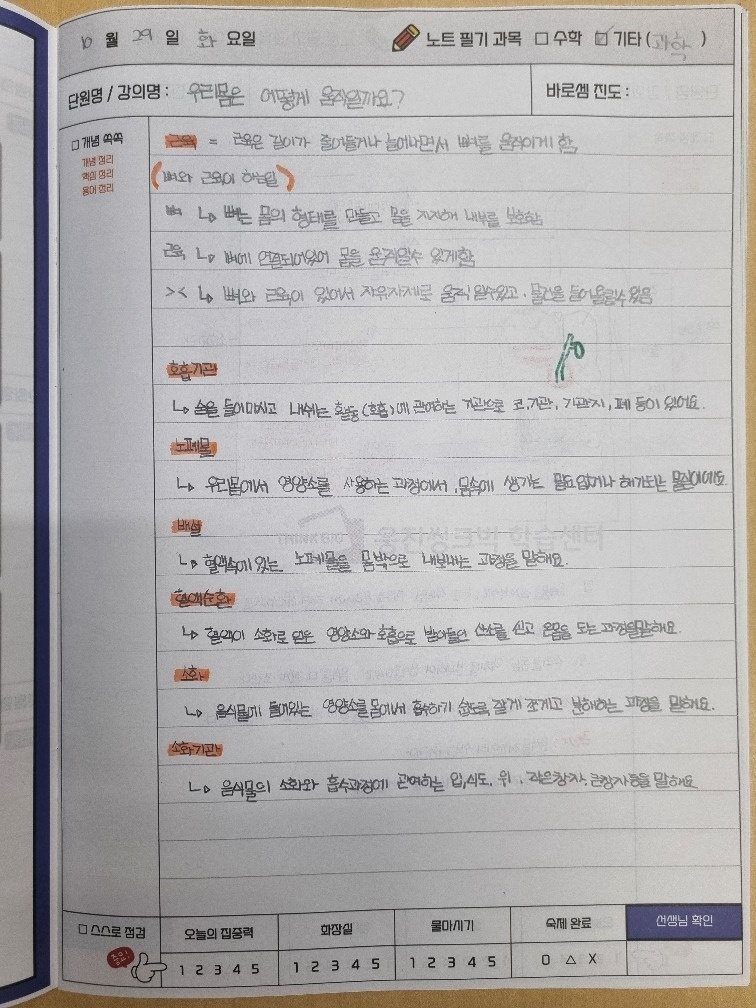 10 월 29 일 화 요일
노트 필기 과목 □ 수학 ☑ 기타 (과학)
단원명 / 강의명 : 우리몸은 어떻게 움직일까요?
바로셈 진도 :
□ 개념 쏙쏙
개념 정리
핵심 정리
용어 정리
근육 = 근육은 길이가 줄어들거나 늘어나면서 뼈를 움직이게 함
(뼈와 근육이 하는일)
뼈 ↳ 뼈는 몸의 형태를 만들고 몸을 지지해 내부를 보호함
근육 ↳ 뼈에 연결되어있어 몸을 움직일수 있게함
>< ↳ 뼈와 근육이 있어서 자유자제로 움직일수있고, 물건을 들어올릴수 있음
호흡기관
↳ 숨을 들이마시고 내쉬는 활동(호흡)에 관여하는 기관으로 코,기관, 기관지, 폐 등이 있어요.
노폐물
↳ 우리몸에서 영양소를 사용하는 과정에서, 몸속에 생기는 필요없거나 해가되는 물질이에요
배설
↳ 혈액속에 있는 노폐물을 몸밖으로 내보내는 과정을 말해요.
혈액순환
↳ 혈액이 소화로 얻은 영양소와 호흡으로 받아들인 산소를 싣고 온몸을 도는 과정을말해요.
소화
↳ 음식물에 들어있는 영양소를 몸에서 흡수하기 쉽도록 잘게 쪼개고 분해하는 과정을 말해요.
소화기관
↳ 음식물의 소화와 흡수과정에 관여하는 입,식도, 위, 작은창자, 큰창자등을 말해요
□ 스스로 점검
오늘의 집중력
화장실
물마시기
숙제 완료
선생님 확인
1 2 3 4 5
1 2 3 4 5
1 2 3 4 5
O △ X